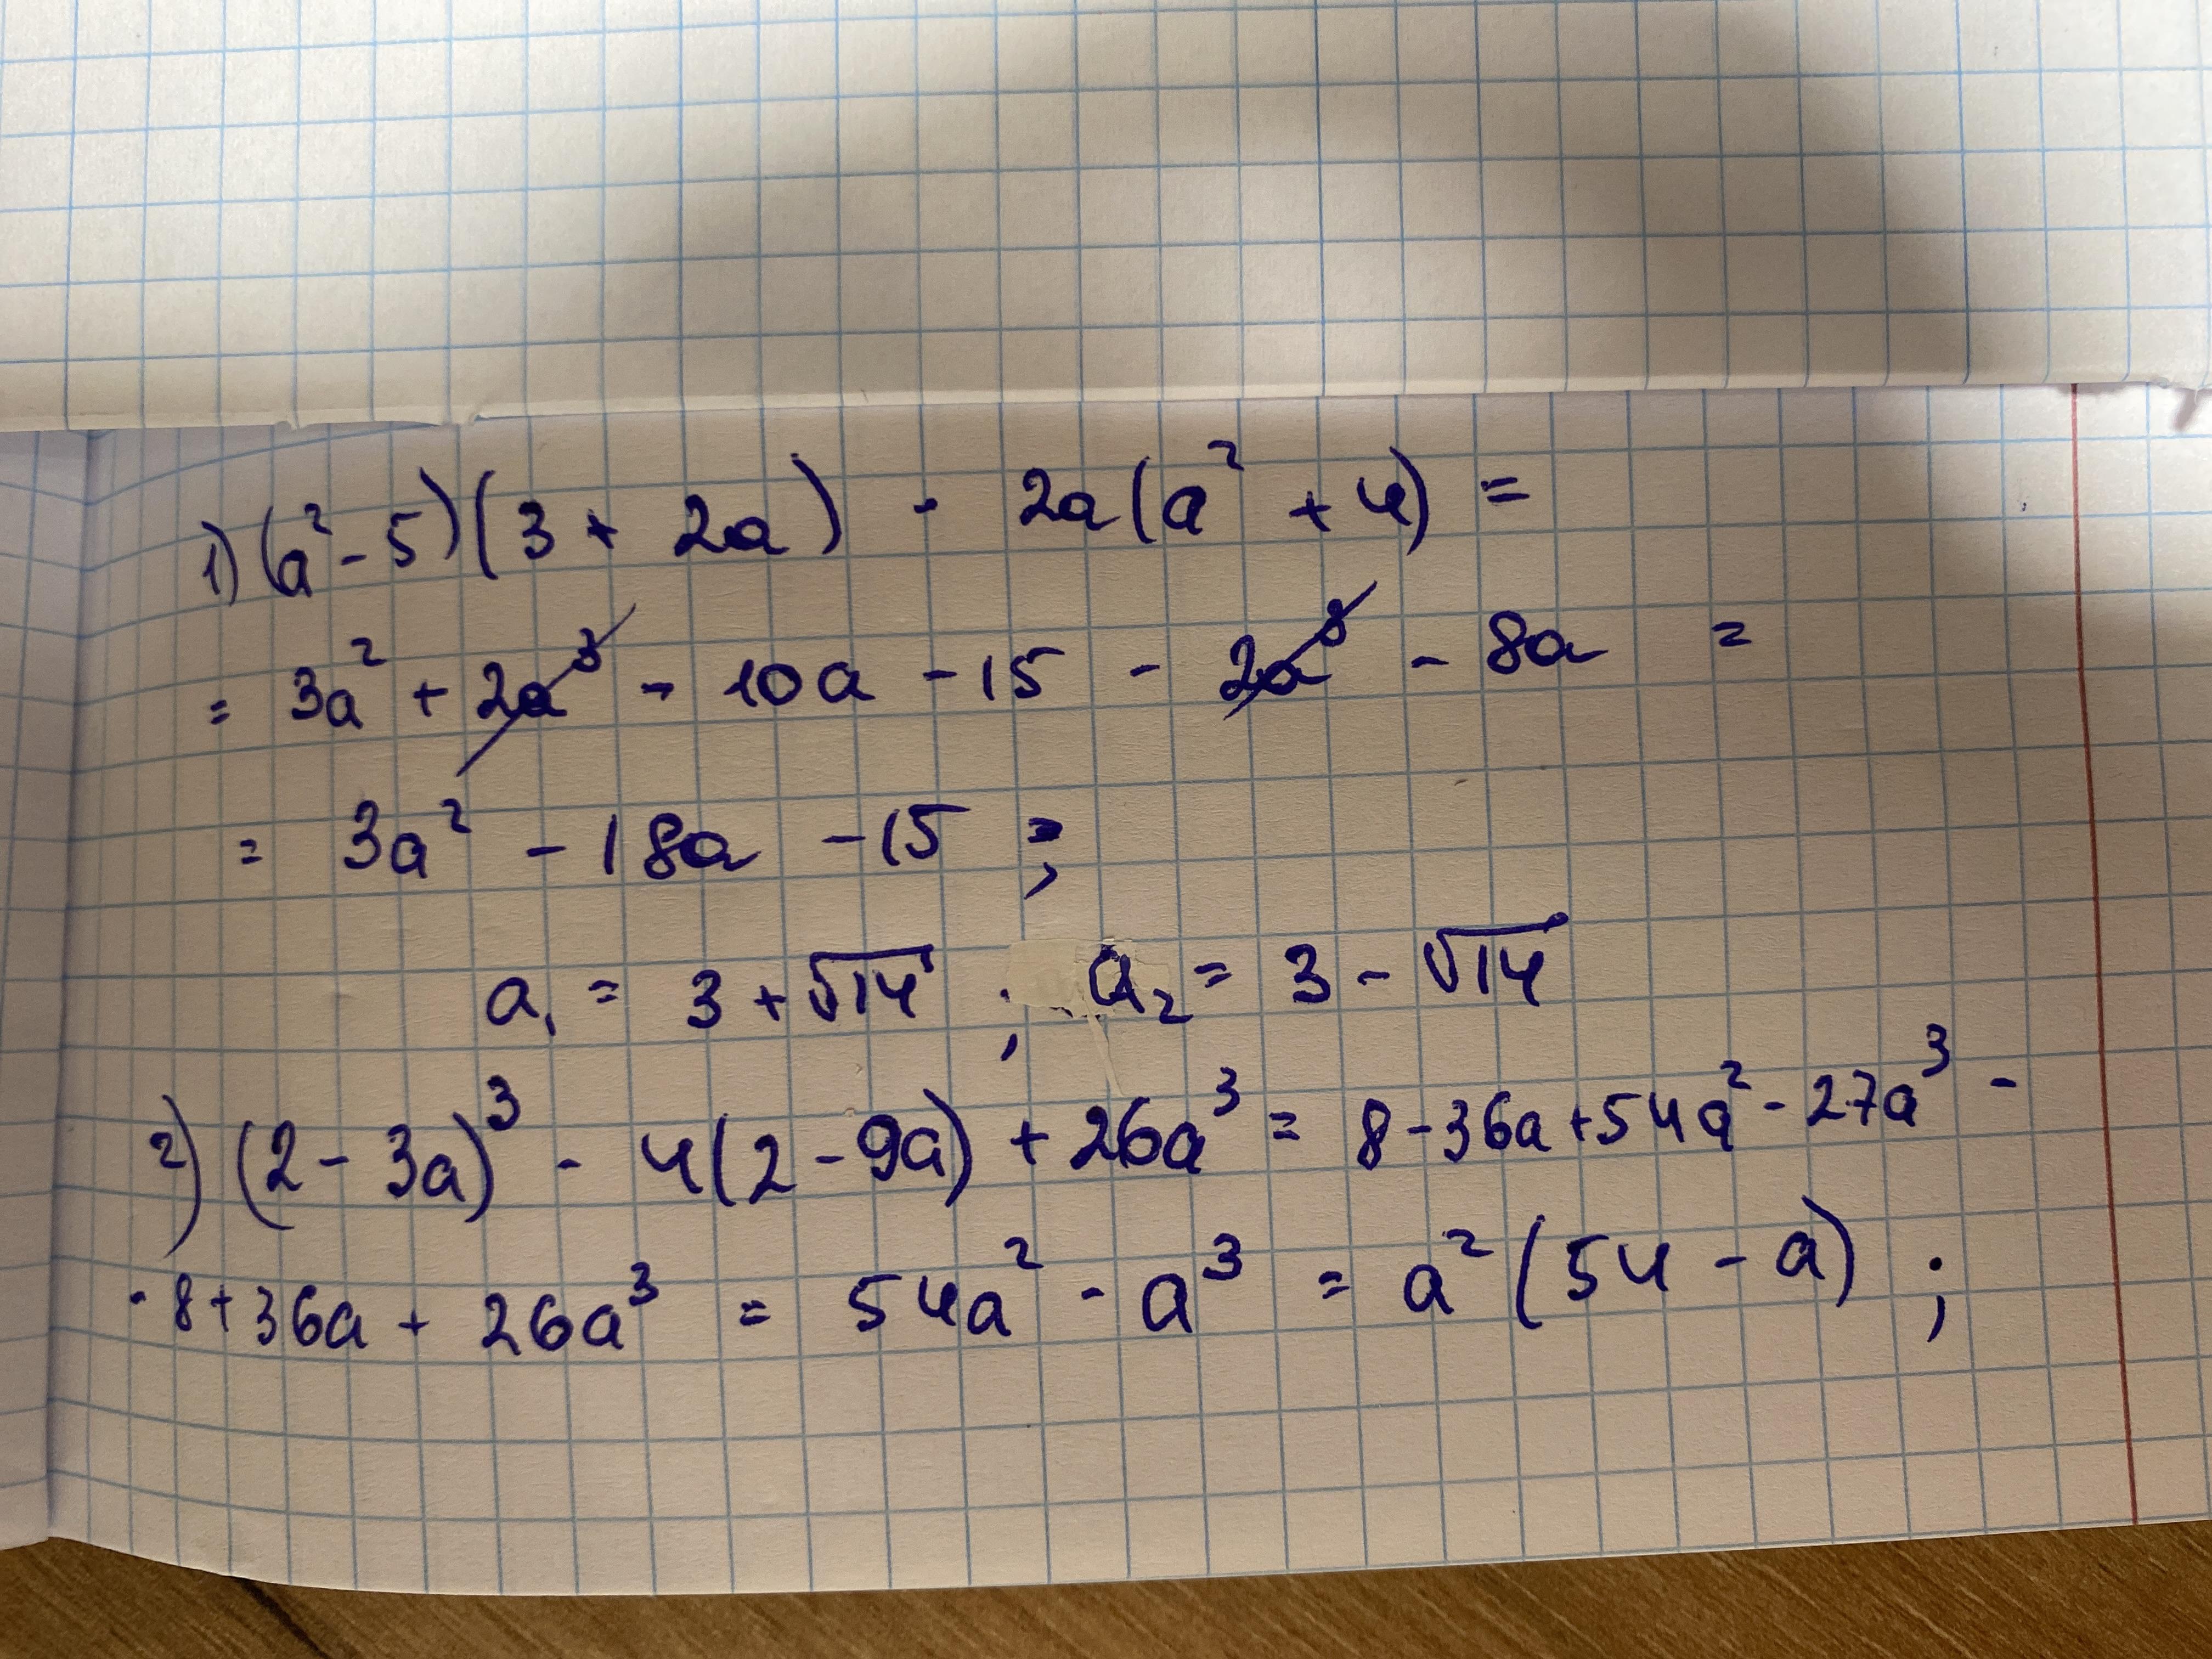 1) (a² - 5)(3 + 2a) - 2a(a² + 4) =
= 3a² + 2a³ - 10a - 15 - 2a³ - 8a =
= 3a² - 18a - 15 ;
a₁ = 3 + √14 ; a₂ = 3 - √14
2) (2 - 3a)³ - 4(2 - 9a) + 26a³ = 8 - 36a + 54a² - 27a³ -
- 8 + 36a + 26a³ = 54a² - a³ = a² (54 - a) ;